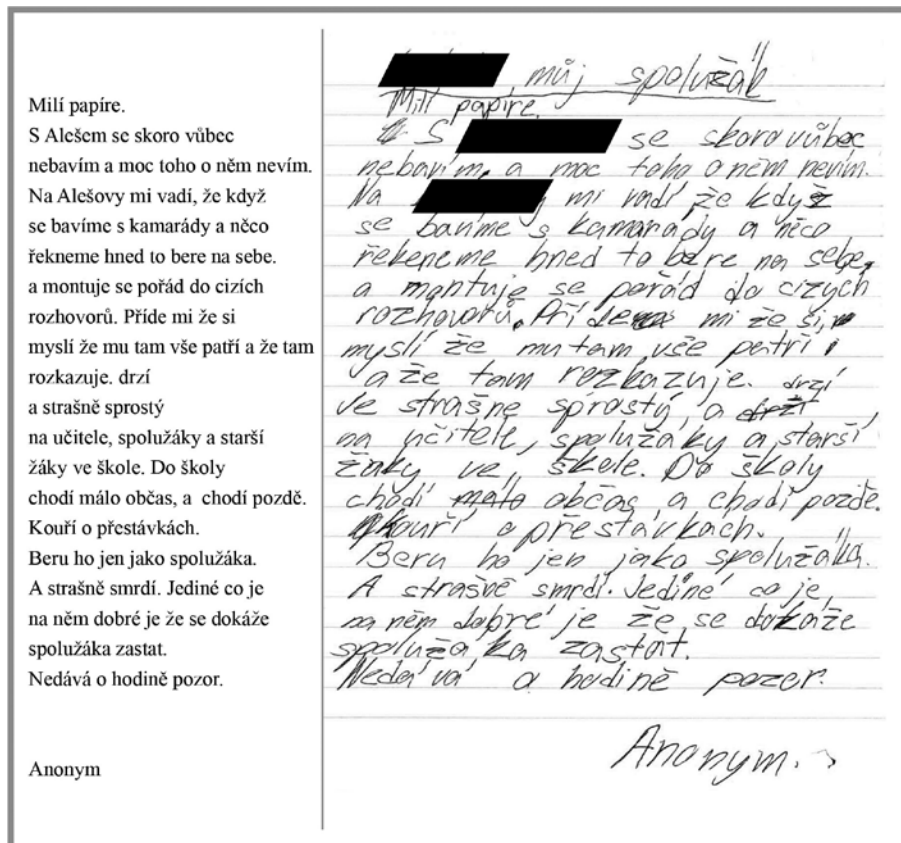 Milí papíre.
S Alešem se skoro vůbec
nebavím a moc toho o něm nevím.
Na Alešovy mi vadí, že když
se bavíme s kamarády a něco
řekneme hned to bere na sebe.
a montuje se pořád do cizích
rozhovorů. Příde mi že si
myslí že mu tam vše patří a že tam
rozkazuje. drzí
a strašně sprostý
na učitele, spolužáky a starší
žáky ve škole. Do školy
chodí málo občas, a  chodí pozdě.
Kouří o přestávkách.
Beru ho jen jako spolužáka.
A strašně smrdí. Jediné co je
na něm dobré je že se dokáže
spolužáka zastat.
Nedává o hodině pozor.
Anonym
můj spolužák
Milí papíre.
S se skoro vůbec
nebavím a moc toho o něm nevím.
Na mi vadí že když
se bavíme s kamarády a něco
řekeneme hned to bere na sebe,
a montuje se pořád do cizých
rozhovorů. Příde mi že si
myslí že mu tam vše patří
a že tam rozkazuje. drzí
ve strašne sprostý, a drzí
na učitele, spolužáky a starší
žáky ve škole. Do školy
chodí málo občas a chodí pozdě.
kouří o přestávkách.
Beru ho jen jako spolužáka.
A strašně smrdí. Jediné co je
na něm dobré je že se dokáže
spolužáka zastat.
Nedává o hodině pozor.
Anonym.